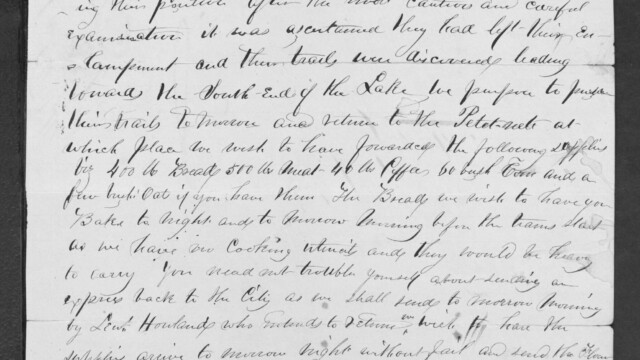 ing this position after the most cautious and careful
examination it was ascertained they had left their En-
campment and their trails were discovered leading
toward the South End of the Lake We purpose to pursue
their trails to morrow and return to the at
which place we wish to have forwarded the following supplies
viz 400 lb Bread 500 lbs Meat 40 lbs Coffee 60 bush Corn and a
few bush Oat if you have them The Bread we wish to have you
Bake to night and to morrow Morning before the teams start
as we have no cooking utensils and they would be heavy
to carry You need not trouble yourself about sending an
express back to the City as we shall send to morrow Morning
by Leut Howland who intends to return wish have the
supplies arrive to morrow night without fail and send the